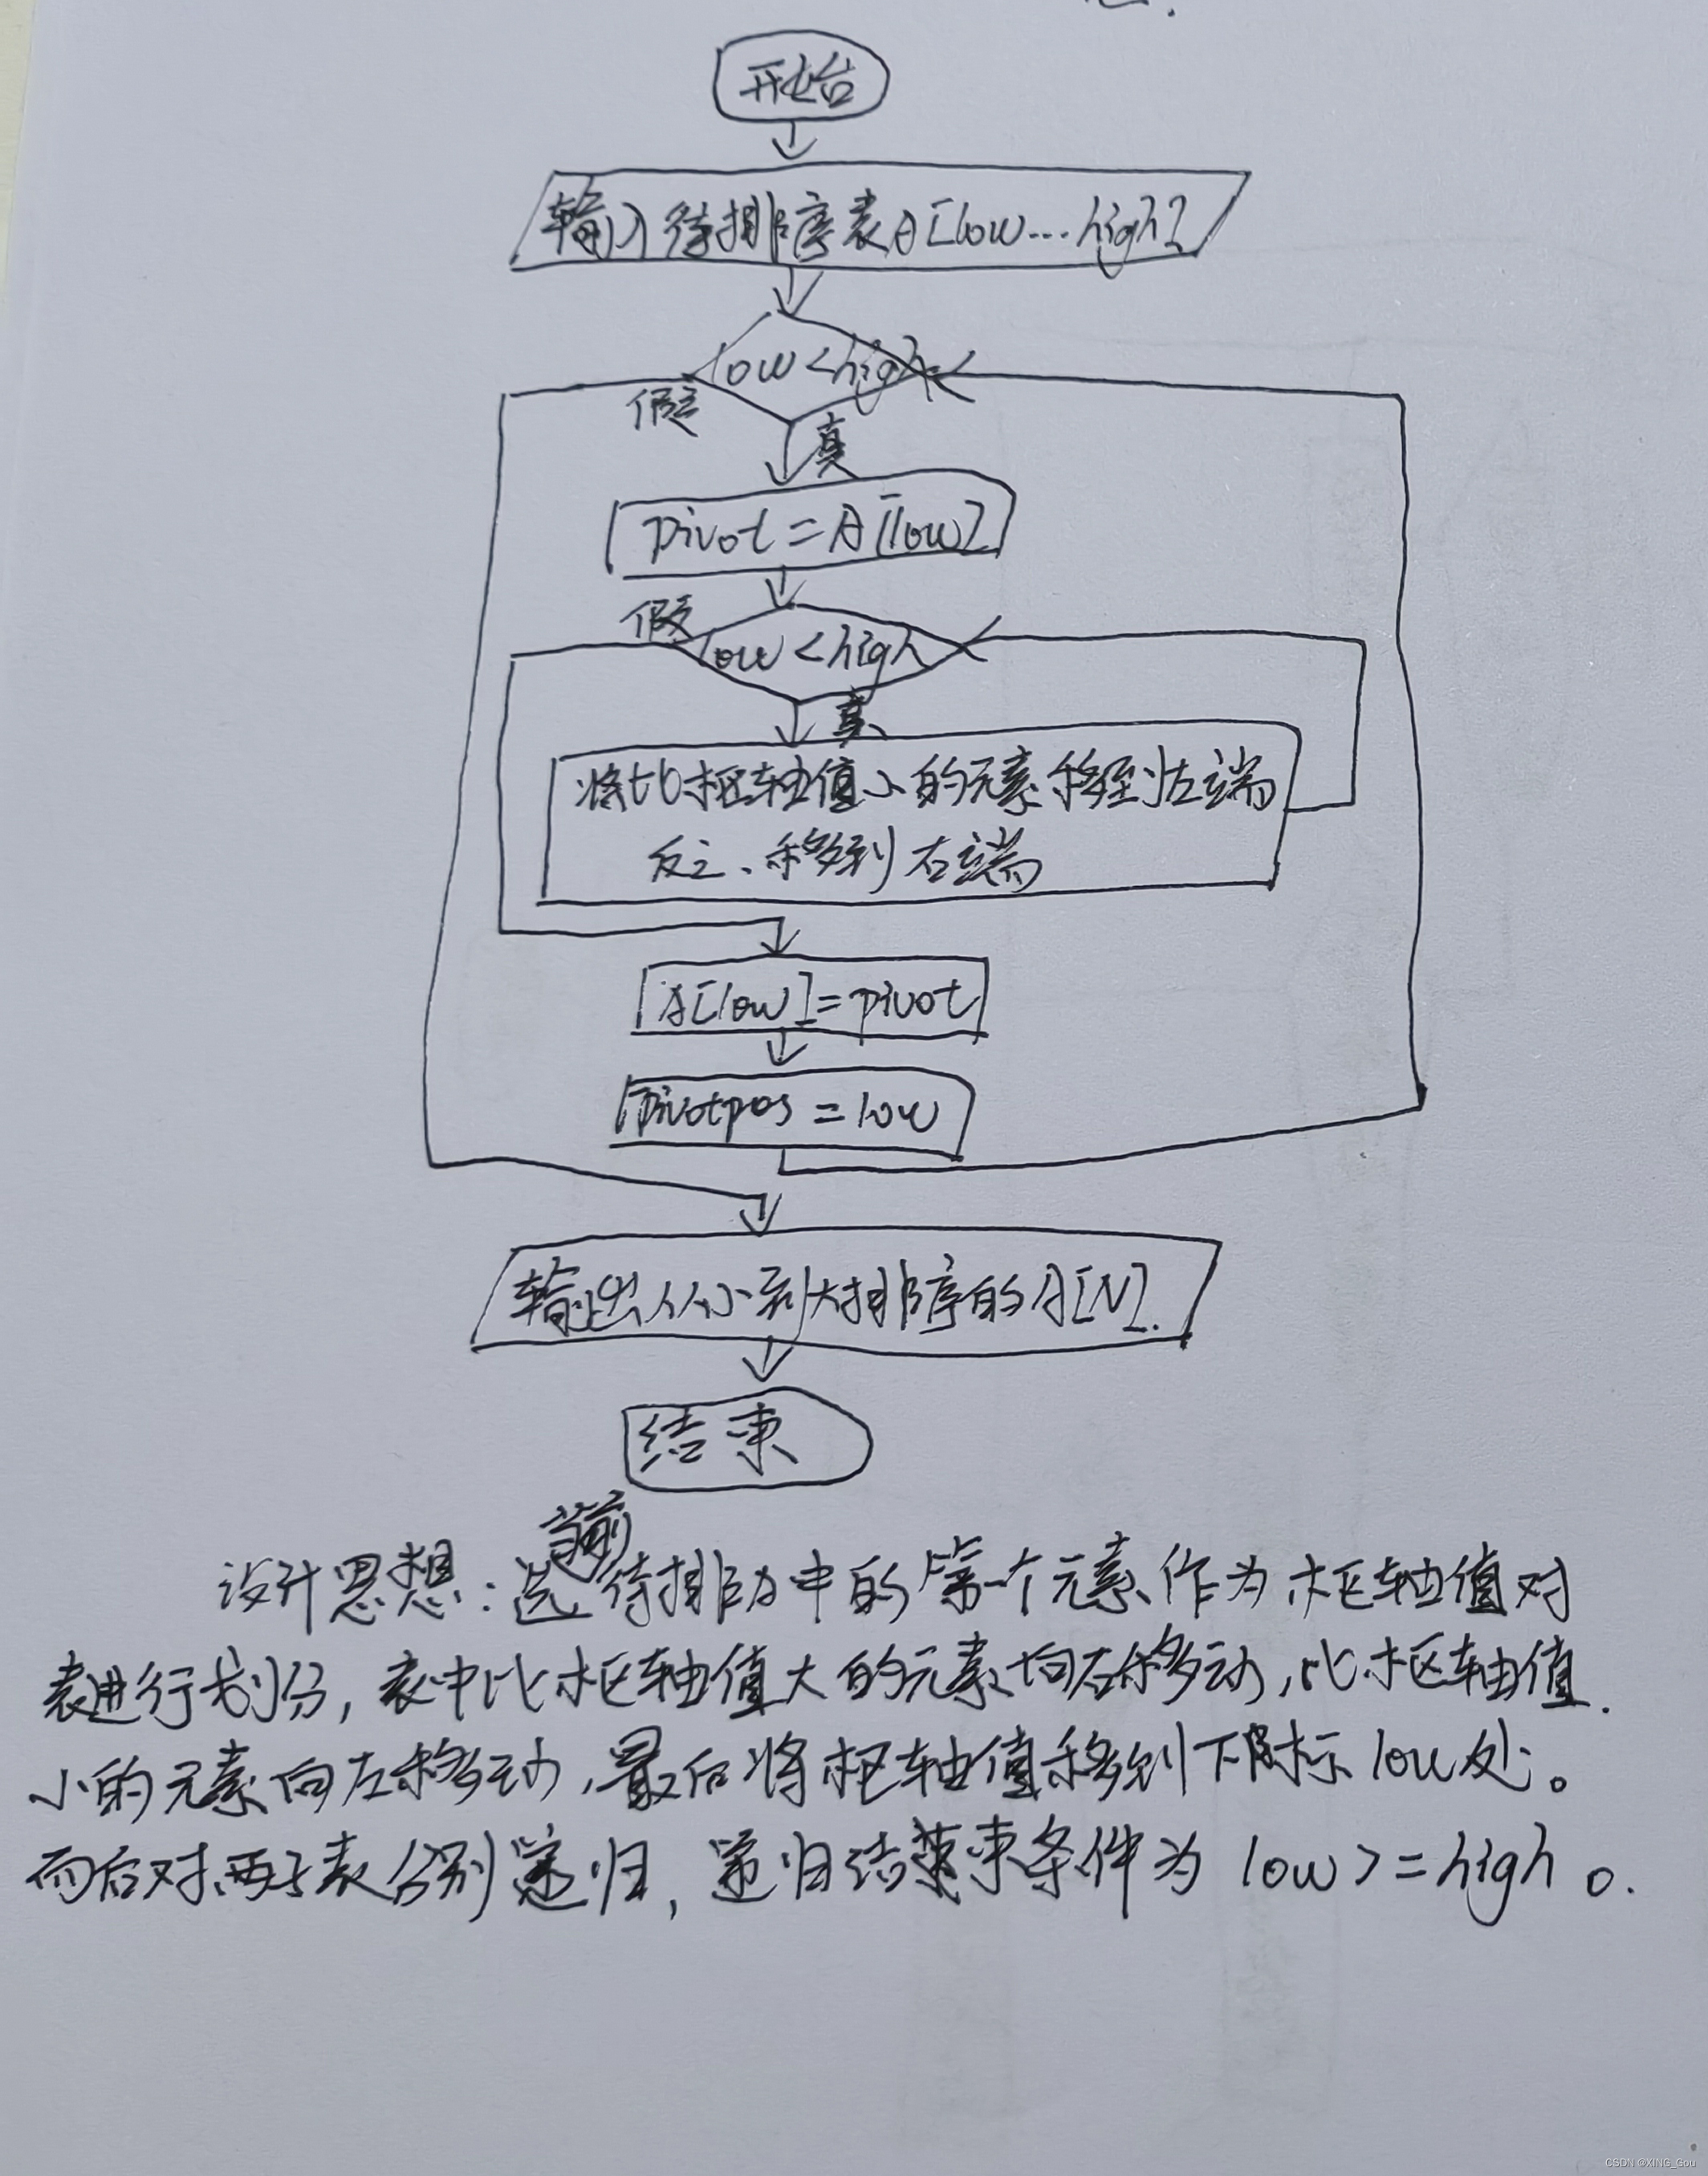 开始
输入待排序表A[low...high]
low<high
假
真
pivot=A[low]
假
low<high
真
将比枢轴值小的元素移到左端
反之、移到右端
A[low]=pivot
Pivotpos=low
输出从小到大排序的A[N].
结束
当前
设计思想:选待排序中的第一个元素作为枢轴值对
表进行划分,表中比枢轴值大的元素向右移动,比枢轴值
小的元素向左移动,最后将枢轴值移到下标low处。
而后对两子表分别递归,递归结束条件为low>=high。
CSDN @XING_Gou